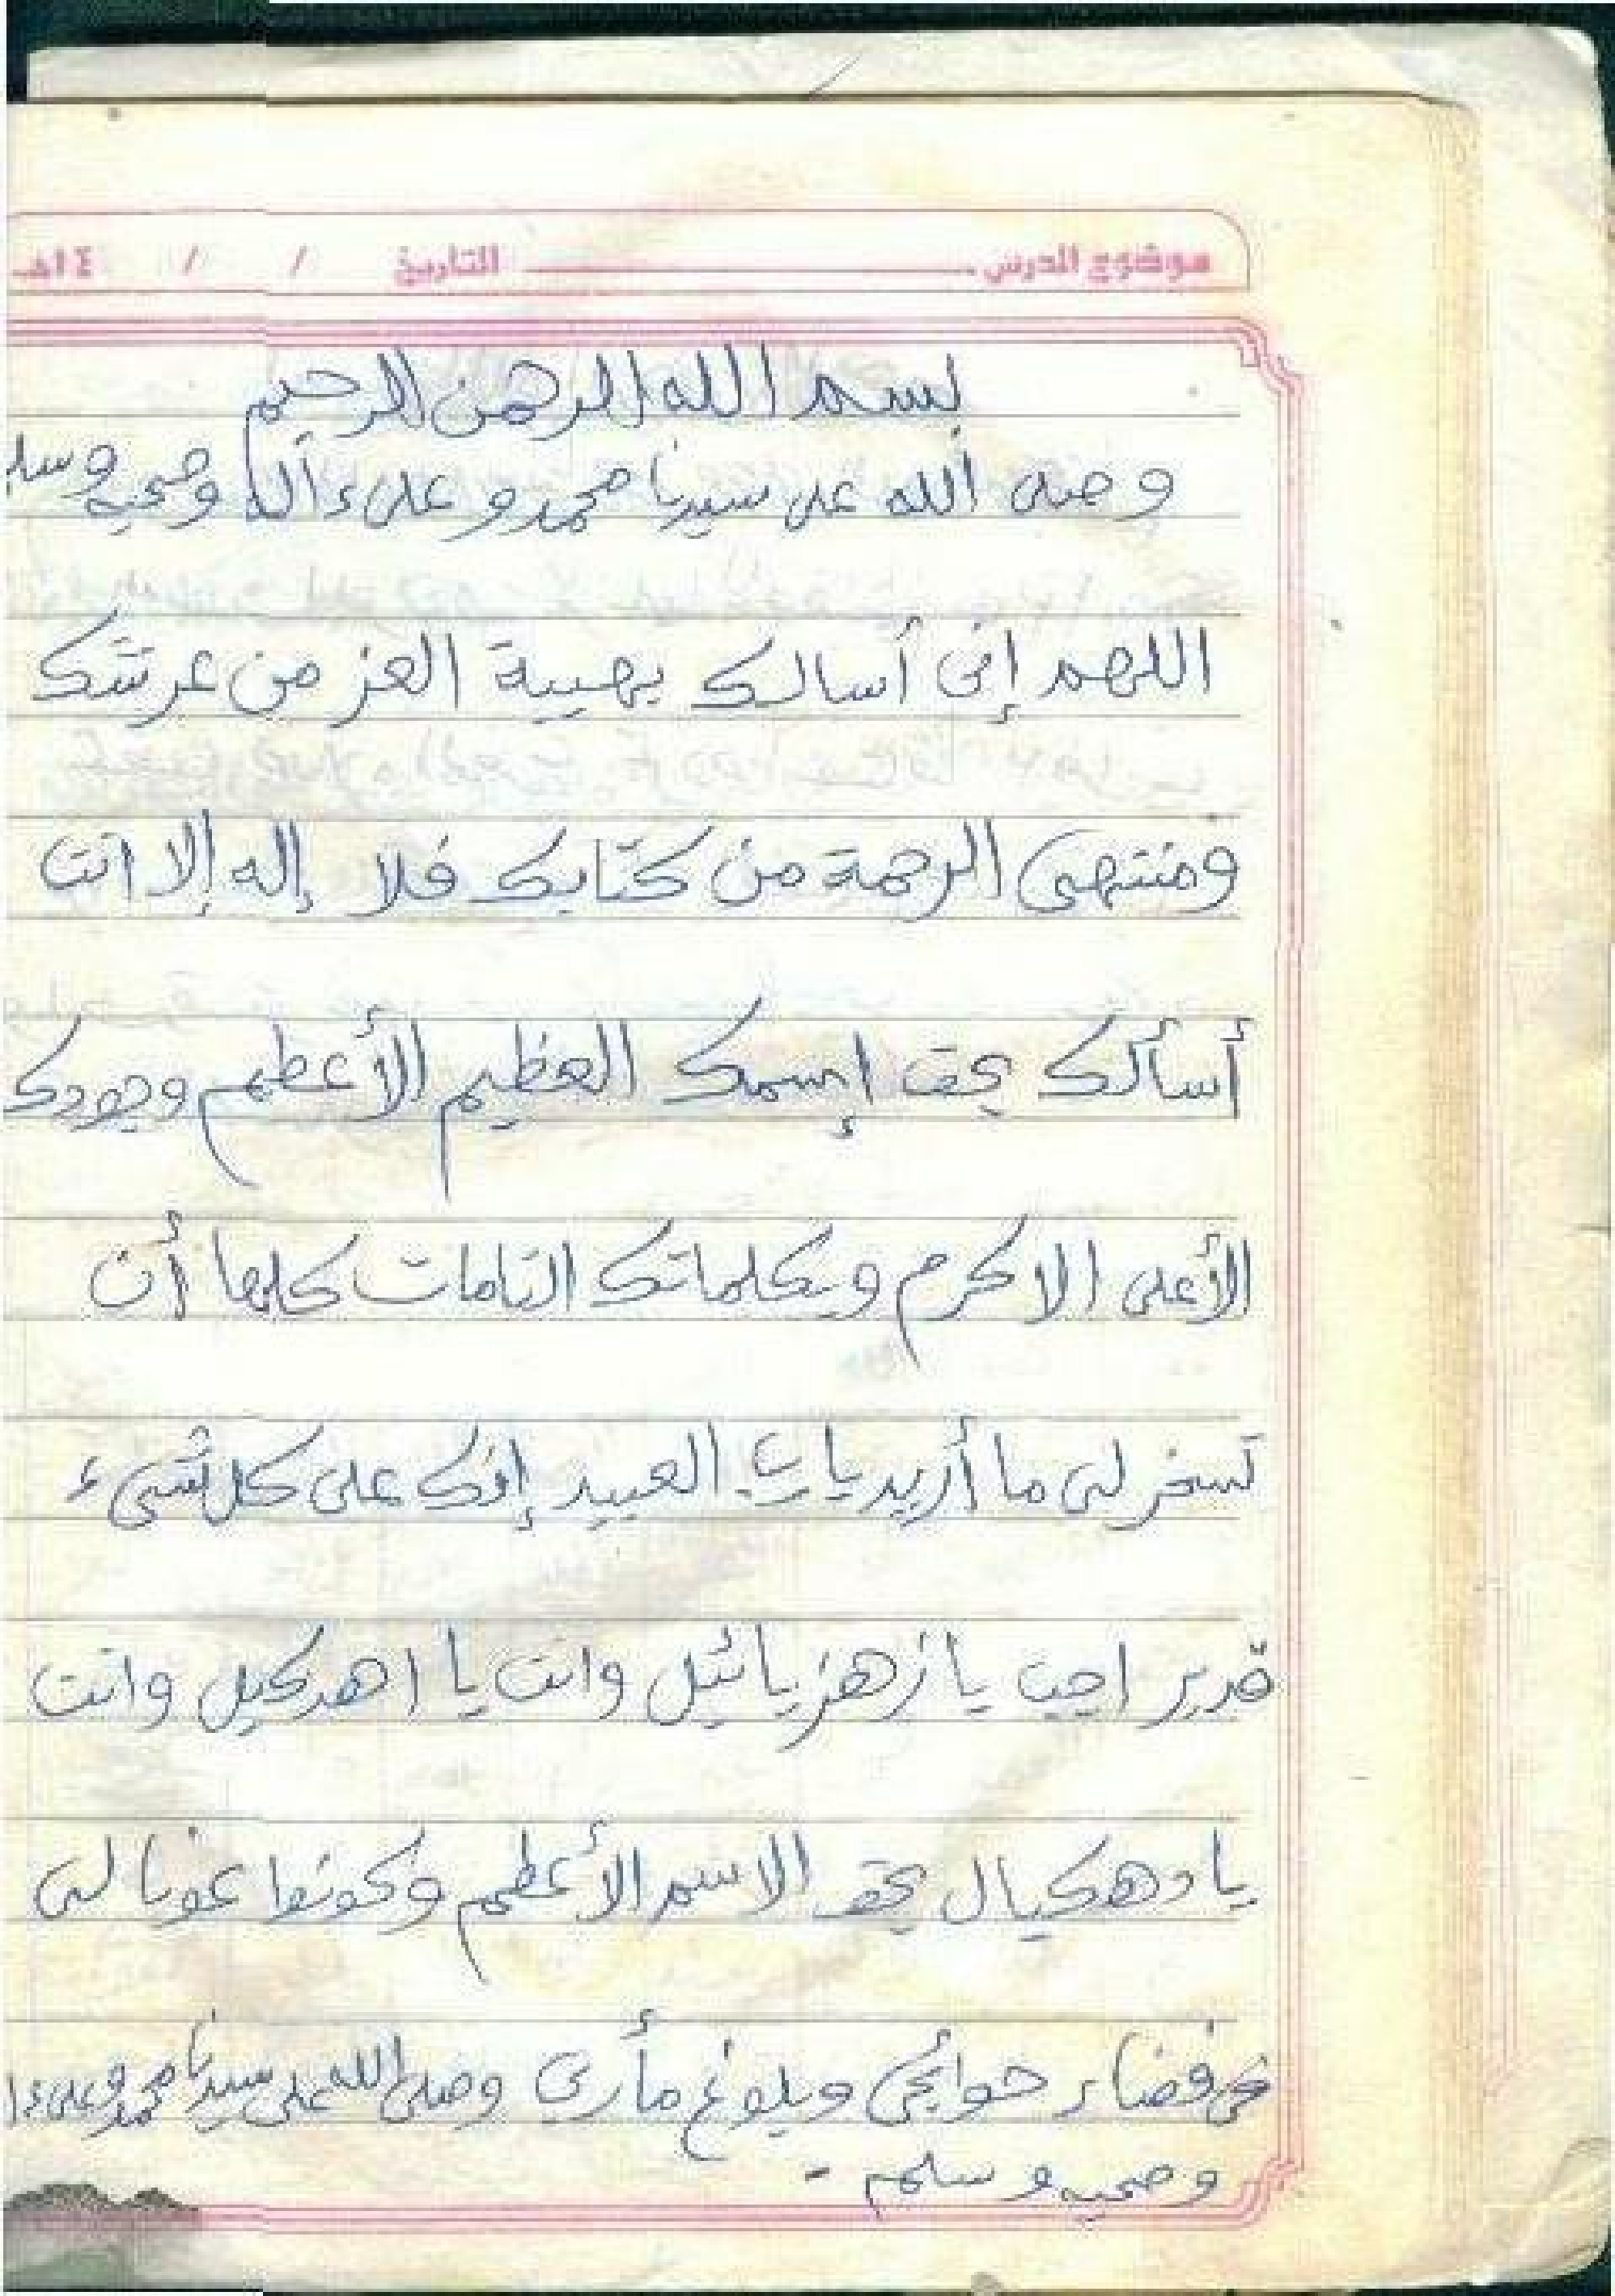 موضوع الدرس ـــــــــ التاريخ / / ١٤هـ
بسم الله الرحمن الرحيم
وصلى الله على سيدنا محمد وعلى ءاله وصحبه وسلم
اللهم إني أسالك بهيبة العز من عرشك
ومنتهى الرحمة من كتابك فلا إله إلا انت
أسألك بحق إسمك العظيم الأعظم وجودك
الأعلى الاكرم وبكلماتك التامات كلها أن
تسخر لى ما أريد يارب العبيد إنك على كل شىء
قدير اجب يا زهزيائيل وانت يا اهدكيل وانت
يا دهكيال بحق الاسم الأعظم وكونوا عونا لى
فى قضاء حوائجى وبلوغ مأربى وصلى الله على سيدنا محمد وعلى ءا
وصحبه وسلم -